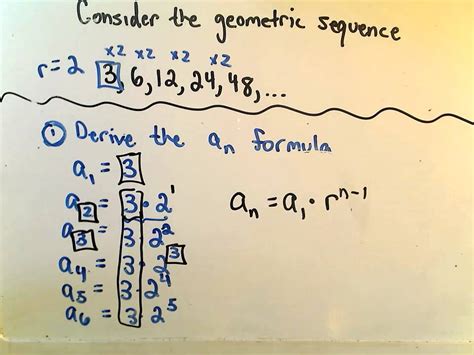 Consider the geometric sequence
x2 x2 x2 x2
r = 2 3, 6, 12, 24, 48, ...
① Derive the aₙ formula
a₁ = 3
a₂ = 3 · 2¹
a₃ = 3 · 2²
a₄ = 3 · 2³
a₅ = 3 · 2⁴
a₆ = 3 · 2⁵
aₙ = a₁ · rⁿ⁻¹